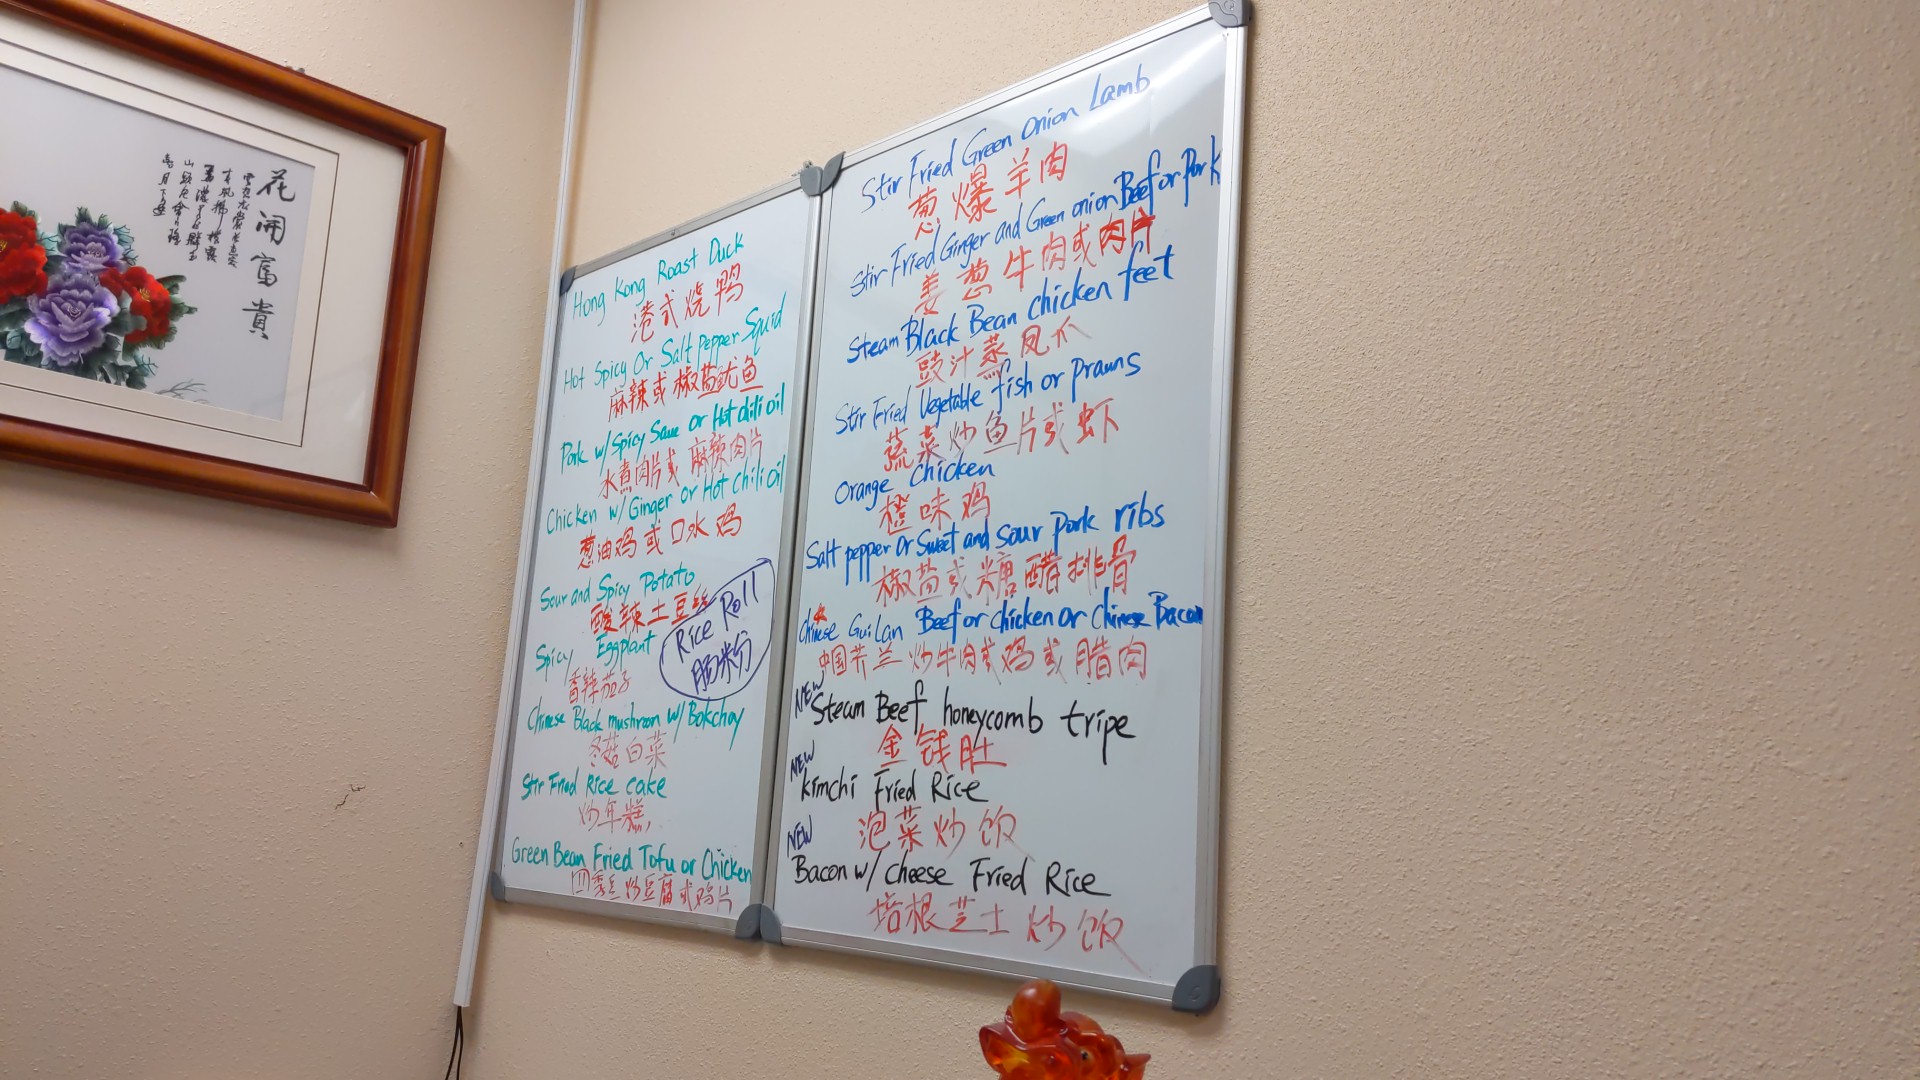 花開富貴
Hong Kong Roast Duck
港式烧鸭
Hot Spicy Or Salt pepper Squid
麻辣或椒盐鱿鱼
Pork w/ Spicy Sauce or Hot chili oil
水煮肉片或麻辣肉片
Chicken w/ Ginger or Hot chili oil
葱油鸡或口水鸡
Sour and Spicy Potato
酸辣土豆丝
Rice Roll
肠粉
Spicy Eggplant
香辣茄子
Chinese Black mushroom w/ Bokchoy
冬菇白菜
Stir Fried Rice cake
炒年糕
Green Bean Fried Tofu or Chicken
四季豆炒豆腐或鸡片
Stir Fried Green Onion Lamb
葱爆羊肉
Stir Fried Ginger and Green onion Beef or Pork
姜葱牛肉或肉片
Steam Black Bean chicken feet
豉汁蒸凤爪
Stir Fried Vegetable fish or prawns
蔬菜炒鱼片或虾
Orange chicken
橙味鸡
Salt pepper or Sweet and sour pork ribs
椒盐或糖醋排骨
Chinese Gui Lan Beef or chicken or Chinese Bacon
中国芥兰炒牛肉或鸡或腊肉
NEW
Steam Beef honeycomb tripe
金钱肚
NEW
kimchi Fried Rice
泡菜炒饭
NEW
Bacon w/ cheese Fried Rice
培根芝士炒饭